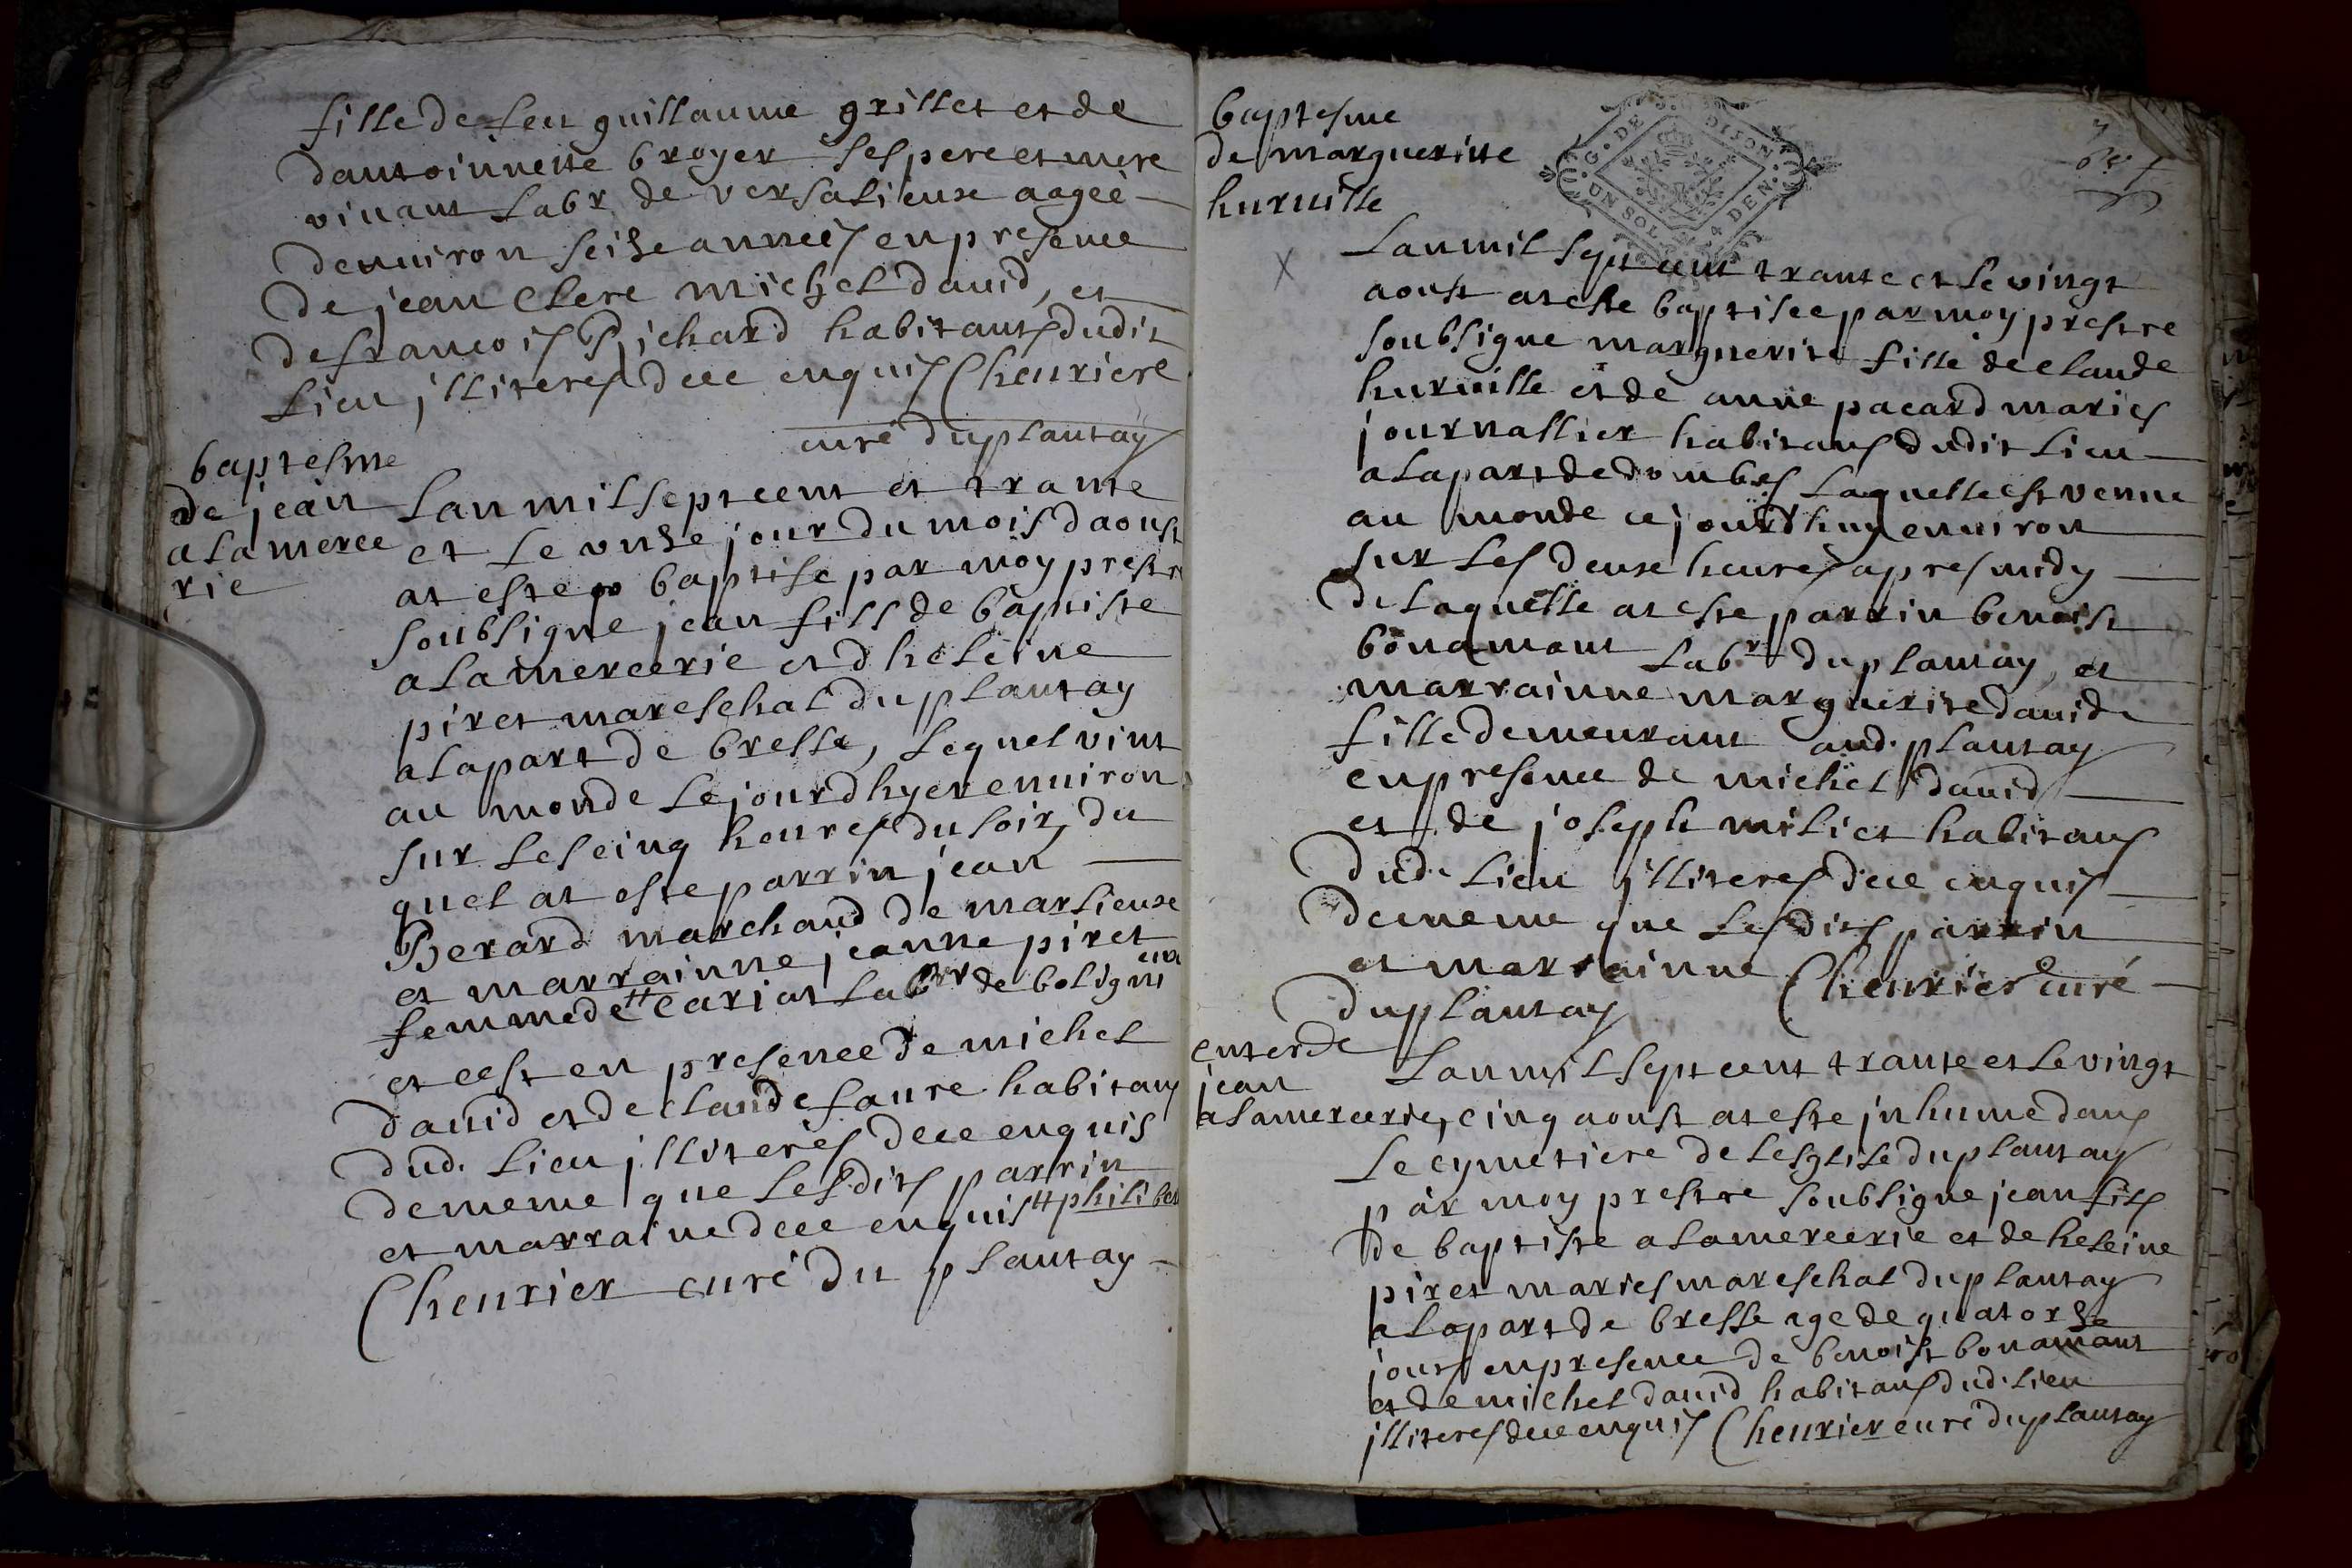 fille de feu guillaume grillet et de
dantoinnette broyer ses pere et mere
vivant labr de versalieuse aageé
denuiron seize anneés en presence
de jean Clerc michel dauid, et
de francois Pichard habitants dudit
lieu jlliteres dece enquis Cheuriere
curé du plantay
baptesme
de jean
a la merce
rie
Lan mil sept cent et trante
et le onze jour du mois daoust
at este baptise par moy prestre
soubsigne jean fils de baptiste
a lamercerie et dheleine
piret mareschal du plantay
a la part de bresse, lequel vint
au monde le jourdhyer enuiron
sur les cinq heures du soir, du
quel at este parrin jean
Berard marchand de marlieuse
et marrainne jeanne piret
femme de # cariat labr de boligneu
et cest en presence de michel
dauid et de claude faure habitans
dud. lieu jlliteres dece enquis
de meme que lesdits parrin
et marraine dece enquis # philibert
Cheurier curé du plantay
baptesme
de margueritte
huruille
G. DE DIJON
UN SOL 4 DEN.
X
Lan mil sept cent trante et le vingt
aoust at este baptisee par moy prestre
soubsigne marguerite fille de claude
huruille et de anne pacard maries
journallier habitans dudit lieu
a la part de dombes laquelle est venue
au monde cejourdhuy enuiron
sur les deuse heures apres midy
de laquelle at este parrin benoist
bonamant labr du plantay, et
marrainne marguerite dauid
fille demeurant aud. plantay
en presence de michel dauid
et de joseph miliet habitans
dud. lieu jlliteres dece enquis
de meme que lesdits parrin
et marrainne Cheurier curé
du plantay
enter de
jean
a lamercerie,
Lan mil sept cent trante et le vingt
cinq aoust at este jnhumé dans
le cymetiere de lesglise du plantay
par moy prestre soubsigne jean fils
de baptiste a lamercerie et de heleine
piret maries mareschal du plantay
a la part de bresse age de quatorze
jours en presence de benoist bonamant
et de michel dauid habitans dud. lieu
jlliteres dece enquis Cheurier curé du plantay